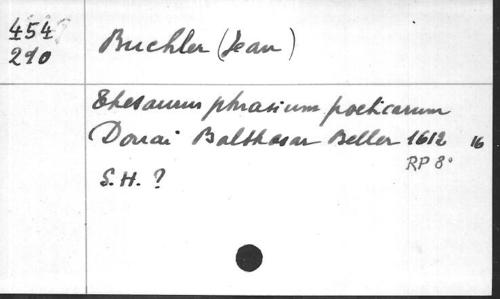 454
210
Buchler (Jean)
Thesaurus phrasium poeticarum
Douai Balthasar Beller 1612 16
RP 8°
S.H. ?